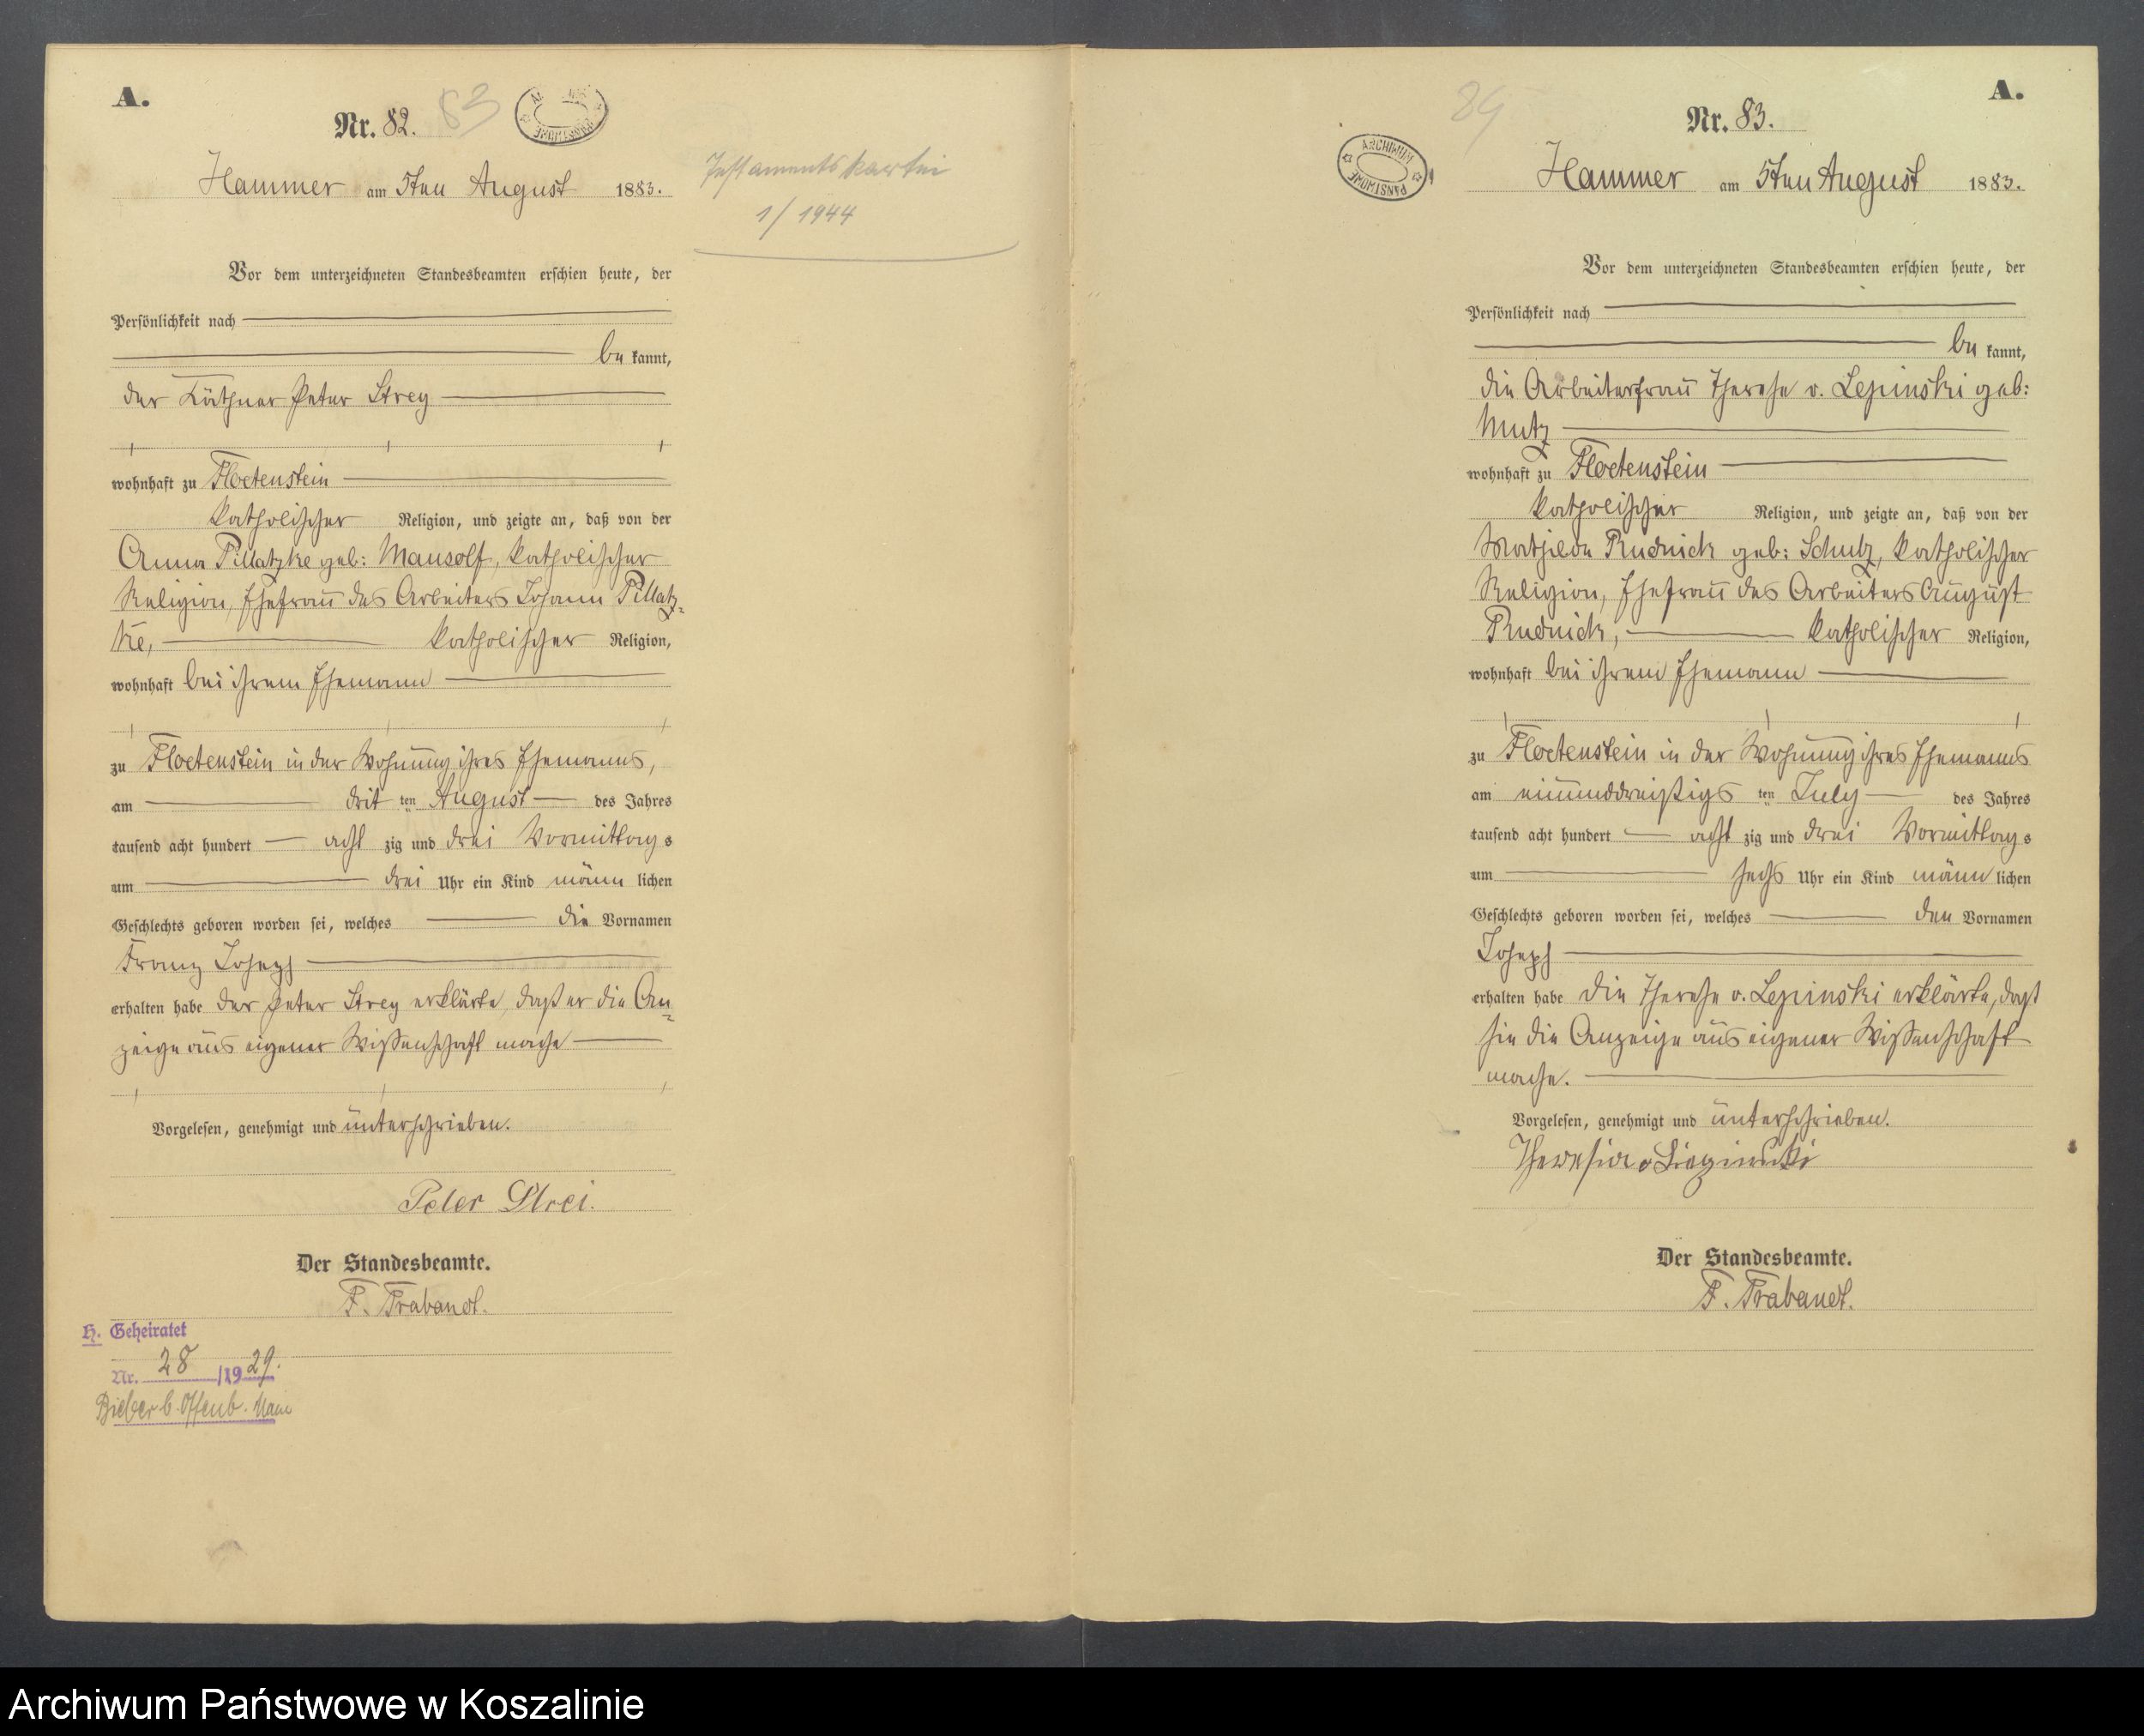 A.
Nr. 82.
83
Hammer am 5ten August 1883.
Testamentskartei
1/1944
Vor dem unterzeichneten Standesbeamten erschien heute, der
Persönlichkeit nach
be kannt,
der Käthner Peter Strey
wohnhaft zu Floetenstein
katholischer Religion, und zeigte an, daß von der
Anna Pillatzke geb: Mansolf, katholischer
Religion, Ehefrau des Arbeiters Johann Pillatz-
ke, katholischer Religion,
wohnhaft bei ihrem Ehemann
zu Floetenstein in der Wohnung ihres Ehemanns,
am drit ten August des Jahres
tausend acht hundert acht zig und drei Vormittags
um drei Uhr ein Kind männ lichen
Geschlechts geboren worden sei, welches die Vornamen
Franz Joseph
erhalten habe der Peter Strey erklärte, daß er die An-
zeige aus eigener Wissenschaft mache
Vorgelesen, genehmigt und unterschrieben.
Peter Strei.
Der Standesbeamte.
F. Trabandt.
H. Geheiratet
Nr. 28 /1929.
Bieber b. Offenb. Main
A.
Nr. 83.
ARCHIWUM PAŃSTWOWE
Hammer am 5ten August 1883.
Vor dem unterzeichneten Standesbeamten erschien heute, der
Persönlichkeit nach
be kannt,
die Arbeiterfrau Therese v. Lepinski geb:
Mutz
wohnhaft zu Floetenstein
katholischer Religion, und zeigte an, daß von der
Mathilde Rudnick geb: Schulz, katholischer
Religion, Ehefrau des Arbeiters August
Rudnick, katholischer Religion,
wohnhaft bei ihrem Ehemann
zu Floetenstein in der Wohnung ihres Ehemanns
am einunddreißigs ten July des Jahres
tausend acht hundert acht zig und drei Vormittags
um sechs Uhr ein Kind männ lichen
Geschlechts geboren worden sei, welches den Vornamen
Joseph
erhalten habe die Therese v. Lepinski erklärte, daß
sie die Anzeige aus eigener Wissenschaft
mache.
Vorgelesen, genehmigt und unterschrieben.
Theresia v
Der Standesbeamte.
F. Trabandt.
Archiwum Państwowe w Koszalinie